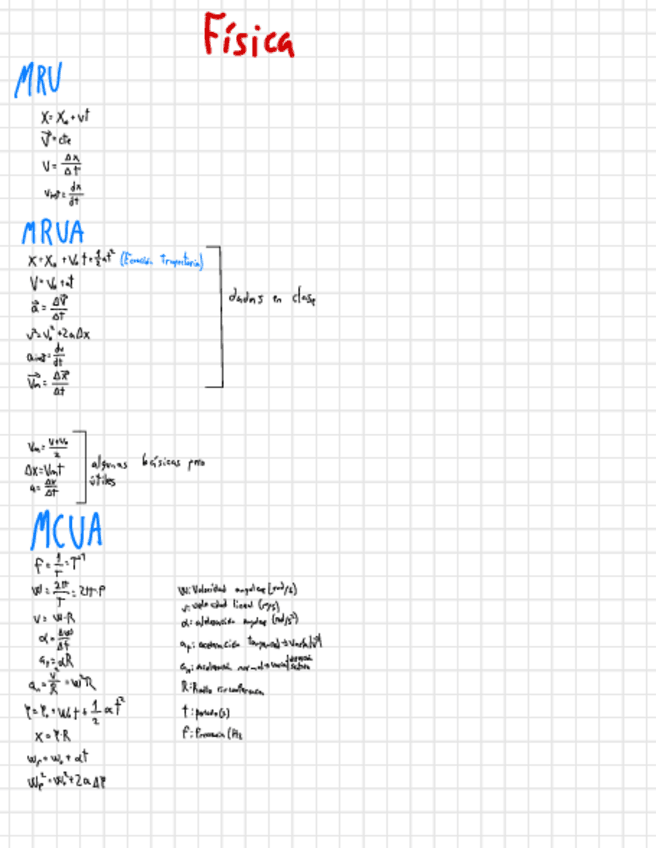 Física
MRU
X = X₀ + vt
v⃗ = cte
V = Δx/Δt
v_inst = dx/dt
MRUA
X = X₀ + V₀t + ½at² (Ecuación trayectoria)
V = V₀ + at
a⃗ = ΔV⃗/Δt
v² = v₀² + 2aΔx
a_inst = dv/dt
V⃗m = Δx⃗/Δt
dadas en clase
Vm = (v+v₀)/2
Δx = Vm t
a = Δv/Δt
algunas básicas pero
útiles
MCUA
f = 1/T = T⁻¹
W = 2π/T = 2π·f
V = W·R
α = Δω/Δt
a_T = αR
a_n = v²/R = ω²R
φ = φ₀ + W₀t + 1/2 αt²
X = φ·R
w_f = w₀ + αt
W_f² = W₀² + 2αΔφ
W: Velocidad angular (rad/s)
v: velocidad lineal (m/s)
α: aceleración angular (rad/s²)
a_T: aceleración tangencial → varía |v⃗|
a_n: aceleración normal → varía
R: Radio circunferencia
T: periodo (s)
f: frecuencia (Hz